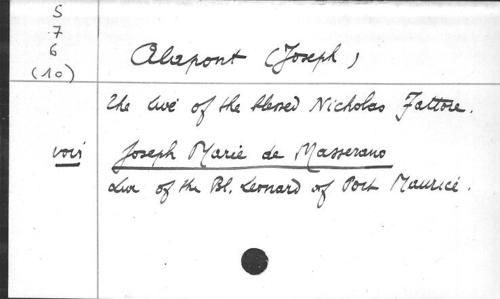 S
7
6
(10)
Alapont (Joseph)
The live of the blessed Nicholas Fattore.
voir Joseph Marie de Masserano
Live of the Bl. Leonard of Port Maurice.